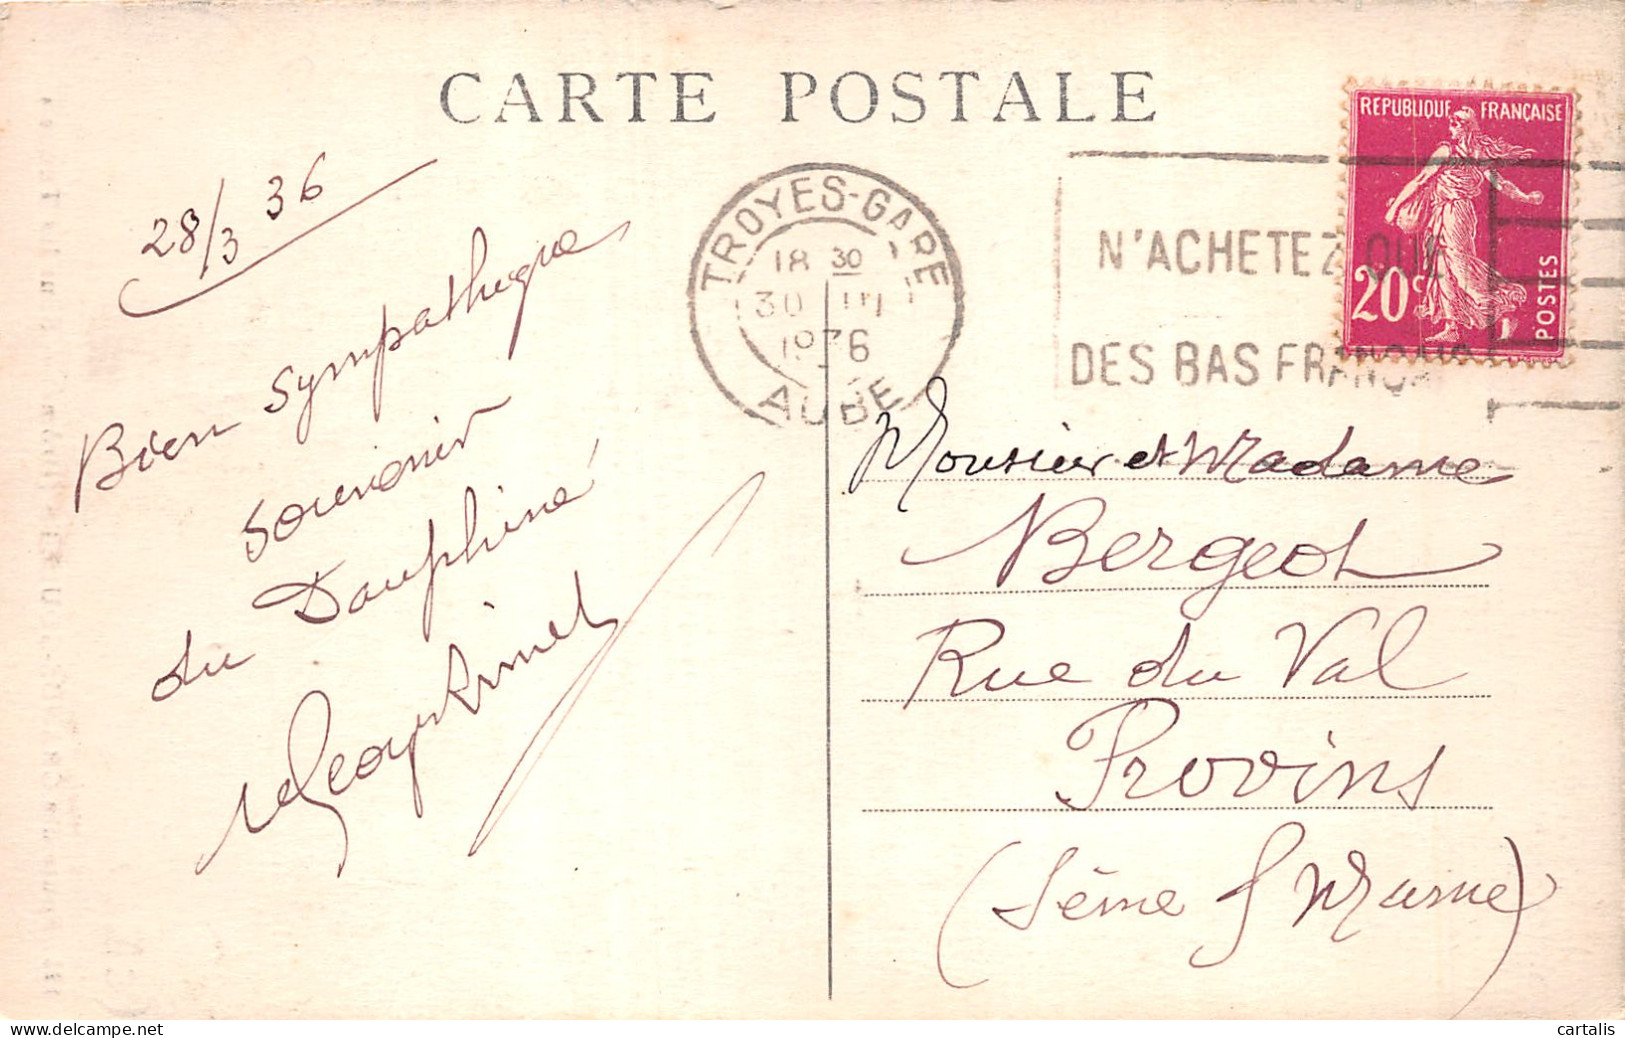 CARTE POSTALE
28/3 36
Bien sympathique
souvenir
du Dauphiné
TROYES-GARE
18 30
30 III
1936
AUBE
N'ACHETEZ QUE
DES BAS FRANÇAIS
REPUBLIQUE FRANÇAISE
20c
POSTES
Monsieur et Madame
Bergeot
Rue du Val
Provins
(Seine & Marne)
cartalis